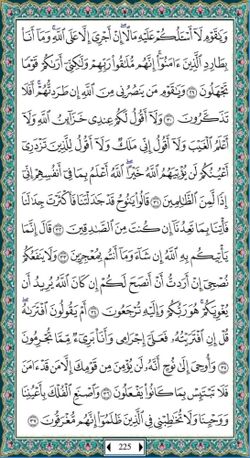 وَيَٰقَوْمِ لَآ أَسْـَٔلُكُمْ عَلَيْهِ مَالًا ۖ إِنْ أَجْرِىَ إِلَّا عَلَى ٱللَّهِ ۚ وَمَآ أَنَا۠
بِطَارِدِ ٱلَّذِينَ ءَامَنُوٓا۟ ۚ إِنَّهُم مُّلَٰقُوا۟ رَبِّهِمْ وَلَٰكِنِّىٓ أَرَىٰكُمْ قَوْمًا
تَجْهَلُونَ ٢٩ وَيَٰقَوْمِ مَن يَنصُرُنِى مِنَ ٱللَّهِ إِن طَرَدتُّهُمْ ۚ أَفَلَا
تَذَكَّرُونَ ٣٠ وَلَآ أَقُولُ لَكُمْ عِندِى خَزَآئِنُ ٱللَّهِ وَلَآ
أَعْلَمُ ٱلْغَيْبَ وَلَآ أَقُولُ إِنِّى مَلَكٌ وَلَآ أَقُولُ لِلَّذِينَ تَزْدَرِىٓ
أَعْيُنُكُمْ لَن يُؤْتِيَهُمُ ٱللَّهُ خَيْرًا ۖ ٱللَّهُ أَعْلَمُ بِمَا فِىٓ أَنفُسِهِمْ ۖ إِنِّىٓ
إِذًا لَّمِنَ ٱلظَّٰلِمِينَ ٣١ قَالُوا۟ يَٰنُوحُ قَدْ جَٰدَلْتَنَا فَأَكْثَرْتَ جِدَٰلَنَا
فَأْتِنَا بِمَا تَعِدُنَآ إِن كُنتَ مِنَ ٱلصَّٰدِقِينَ ٣٢ قَالَ إِنَّمَا
يَأْتِيكُم بِهِ ٱللَّهُ إِن شَآءَ وَمَآ أَنتُم بِمُعْجِزِينَ ٣٣ وَلَا يَنفَعُكُمْ
نُصْحِىٓ إِنْ أَرَدتُّ أَنْ أَنصَحَ لَكُمْ إِن كَانَ ٱللَّهُ يُرِيدُ أَن
يُغْوِيَكُمْ ۚ هُوَ رَبُّكُمْ وَإِلَيْهِ تُرْجَعُونَ ٣٤ أَمْ يَقُولُونَ ٱفْتَرَىٰهُ ۖ
قُلْ إِنِ ٱفْتَرَيْتُهُۥ فَعَلَىَّ إِجْرَامِى وَأَنَا۠ بَرِىٓءٌ مِّمَّا تُجْرِمُونَ
٣٥ وَأُوحِىَ إِلَىٰ نُوحٍ أَنَّهُۥ لَن يُؤْمِنَ مِن قَوْمِكَ إِلَّا مَن قَدْ ءَامَنَ
فَلَا تَبْتَئِسْ بِمَا كَانُوا۟ يَفْعَلُونَ ٣٦ وَٱصْنَعِ ٱلْفُلْكَ بِأَعْيُنِنَا
وَوَحْيِنَا وَلَا تُخَٰطِبْنِى فِى ٱلَّذِينَ ظَلَمُوٓا۟ ۚ إِنَّهُم مُّغْرَقُونَ ٣٧
225